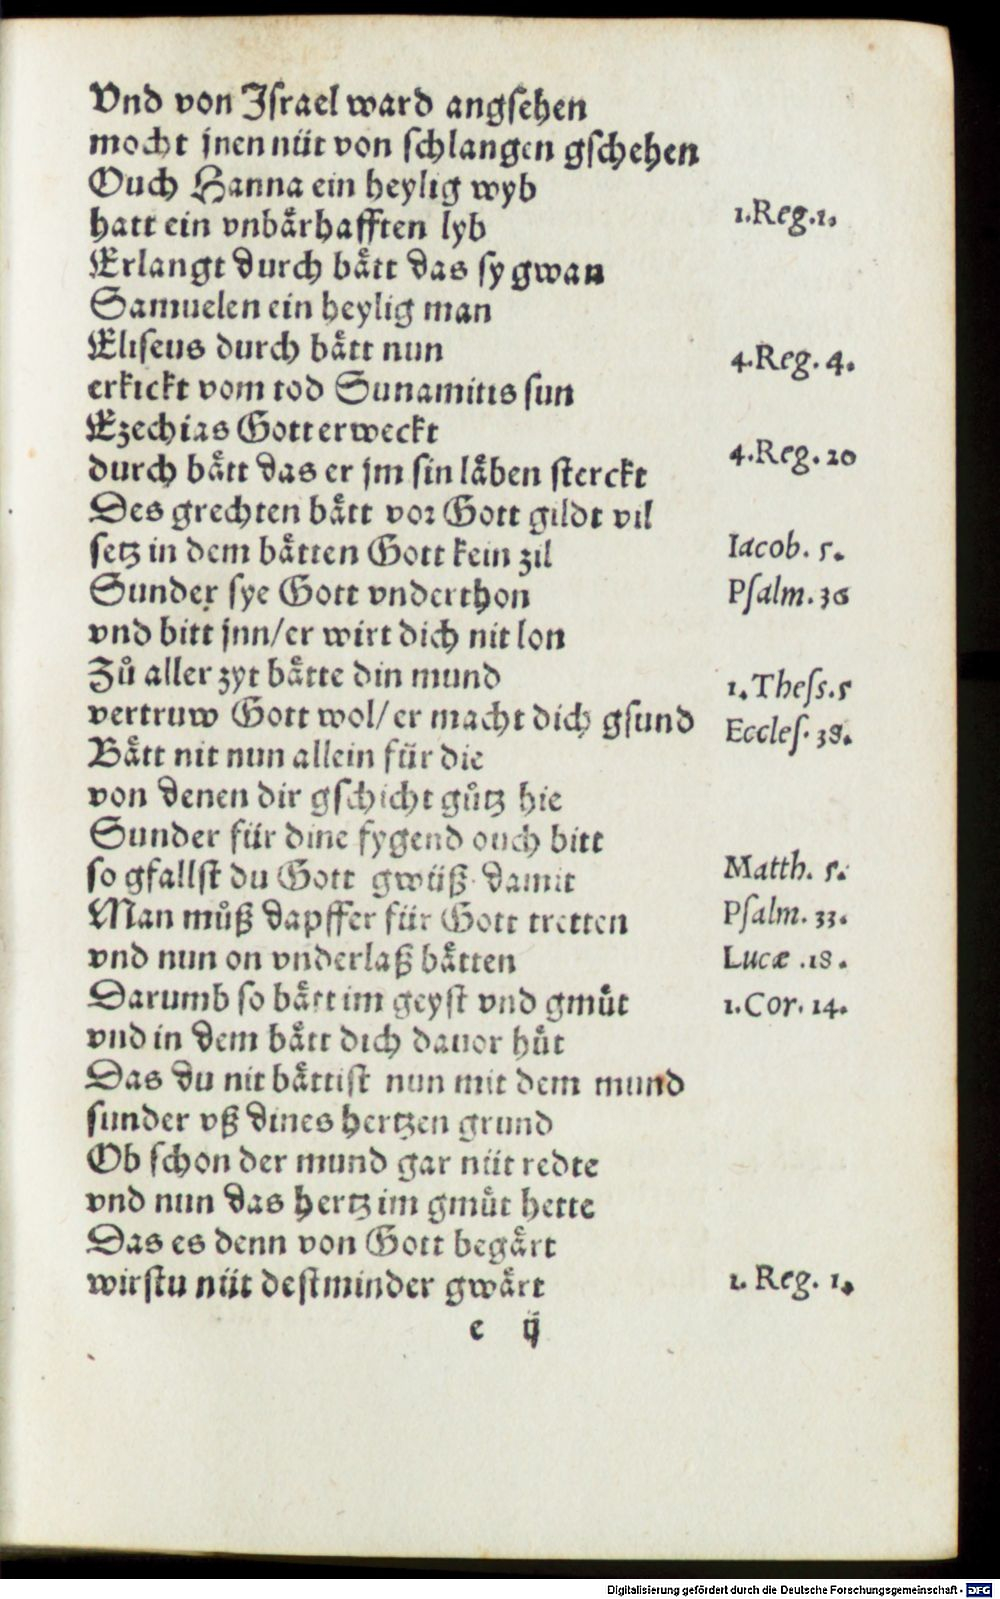 Vnd von Israel ward angsehen
mocht jnen nüt von schlangen gschehen
Ouch Hanna ein heylig wyb
hatt ein vnbaͤrhafften lyb
1.Reg.1.
Erlangt durch baͤtt das sy gwan
Samuelen ein heylig man
Eliseus durch baͤtt nun
4.Reg. 4.
erkickt vom tod Sunamitis sun
Ezechias Gott erweckt
durch baͤtt das er jm sin laͤben sterckt
4.Reg. 20
Des grechten baͤtt vor Gott gildt vil
setz in dem baͤtten Gott kein zil
Iacob. 5.
Sunder sye Gott vnderthon
Psalm. 36
vnd bitt jnn/er wirt dich nit lon
Zuͦ aller zyt baͤtte din mund
1.Thess.5
vertruw Gott wol/ er macht dich gsund
Eccles. 38.
Baͤtt nit nun allein für die
von denen dir gschicht guͦtz hie
Sunder für dine fygend ouch bitt
so gfallst du Gott gwüß damit
Matth. 5.
Man muͦß dapffer für Gott tretten
Psalm. 33.
vnd nun on vnderlaß baͤtten
Lucæ .18.
Darumb so baͤtt im geyst vnd gmuͤt
1.Cor. 14.
vnd in dem baͤtt dich dauor huͤt
Das du nit baͤttist nun mit dem mund
sunder vß dines hertzen grund
Ob schon der mund gar nüt redte
vnd nun das hertz im gmuͤt hette
Das es denn von Gott begaͤrt
wirstu nüt destminder gwaͤrt
1. Reg. 1.
e ij
Digitalisierung gefördert durch die Deutsche Forschungsgemeinschaft - DFG